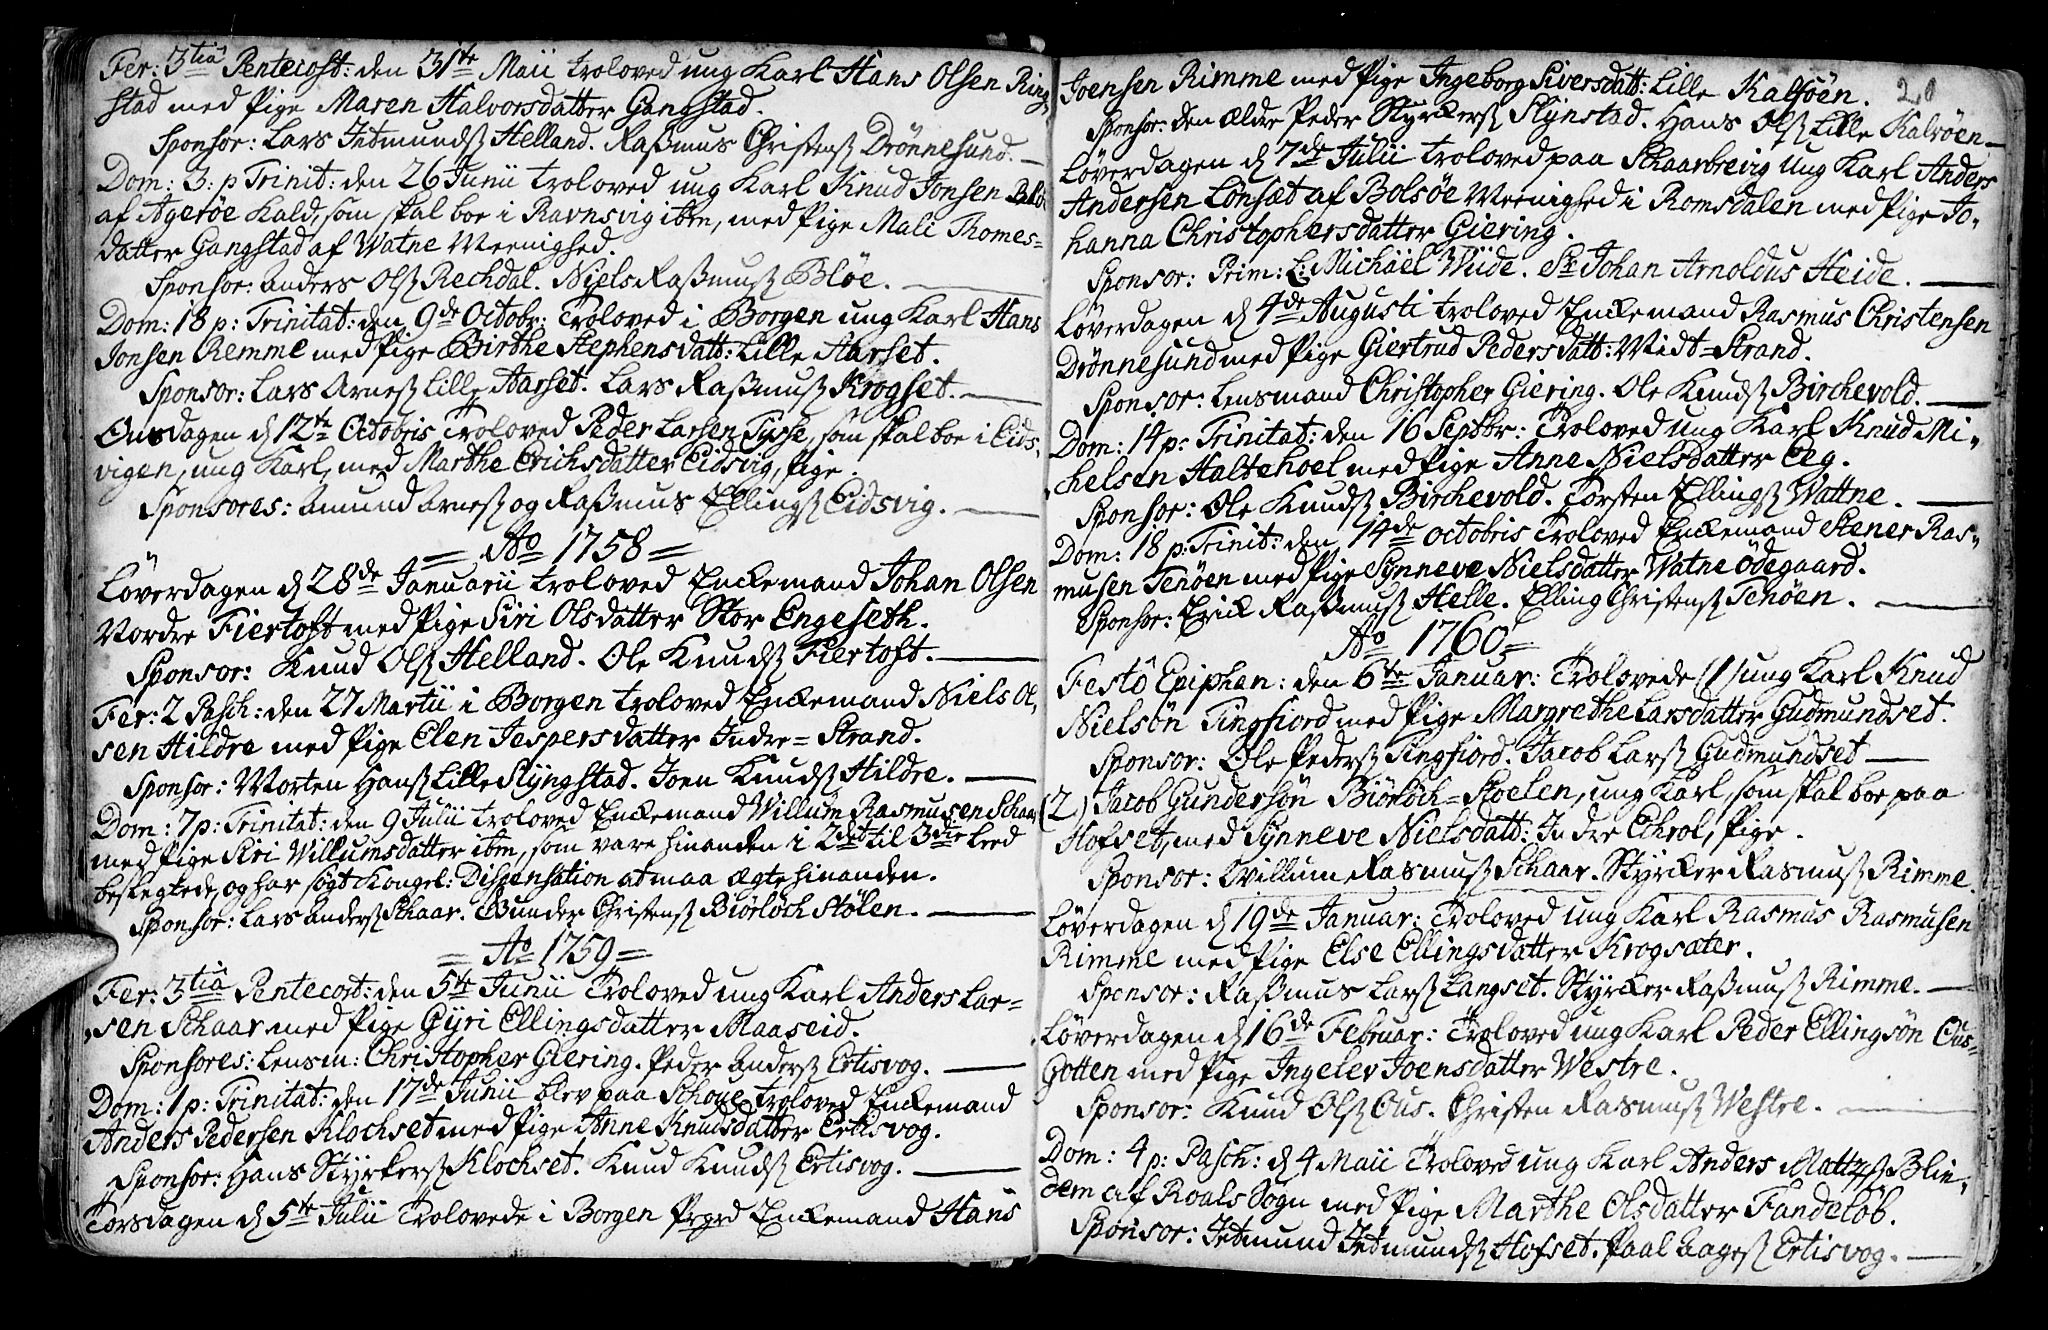 Fer: 3tia Pentecost: den 31te Maii troloved ung Karl Hans Olsen Ring,
stad med Pige Maren Halvorsdatter Gangstad.
Sponsor: Lars Jetmunds Helland. Rasmus Christens Drönnesund.
Dom: 3: p Trinit: den 26 Junii troloved ung Karl Knud Jonsen
af Agerøe Kald, som skal boe i Ravnsvig ibm, med Pige Mali Thomes=
datter Gangstad af Watne Meenighed.
Sponsor: Anders Ols Rechdal. Niels Rasmus Bløe.
Dom: 18 p: Trinitat: den 9de Octobr: Troloved i Borgen ung Karl Hans
Jonsen Remme med Pige Birthe Stephensdatt: Lille Aarset.
Sponsor: Lars Arnes Lille Aarset. Lars Rasmus Krogset.
Onsdagen d 12te Octobris Troloved Peder Larsen Fyrse, som skal boe i Eids,
vigen, ung Karl, med Marthe Erichsdatter Eidsvig, Pige.
Sponsores: Amund Arnes og Rasmus Ellings Eidsvig.
= Ao 1758 =
Löverdagen d 28de Januarii troloved Enckemand Johan Olsen
Nordre Fiertoft med Pige Siri Olsdatter Stor Engeseth.
Sponsor: Knud Ols Helland. Ole Knuds Fiertoft.
Fer: 2 Pasch: den 27 Martii i Borgen troloved Enckemand Niels Ol,
sen Hildre med Pige Elen Jespersdatter Indre=Strand.
Sponsor: Morten Hans Lille Slyngstad. Joen Knuds Hildre.
Dom: 7 p: Trinitat: den 9 Julii troloved Enckemand Willum Rasmusen Schaar
med Pige Siri Willumsdatter ibm, som vare hinanden i 2det til 3die Leed
beslegtede, og har søgt Kongel: Dispensation at maa ægte hinanden.
Sponsor: Lars Anders Schaar. Gunder Christens Biörløch Stølen.
= Ao 1759 =
Fer: 3tia Pentecost: den 5te Junii Troloved ung Karl Anders Lar=
sen Schaar med Pige Gÿri Ellingsdatter Maaseid.
Sponsores: Lensm: Christopher Giering. Peder Anders Ertisvog.
Dom: 1 p: Trinitat: den 17de Junii blev paa Schoue troloved Enckemand
Anders Pedersen Klochset med Pige Anne Knudsdatter Ertisvog.
Sponsor: Hans Styrkers Klochset. Knud Knuds Ertisvog.
Torsdagen d 5te Julii Trolovede i Borgen Enckemand Hans
20
Joensen Rimme med Pige Ingeborg Siversdatt: Lille Kalsöen.
Sponsor: den Ældre Peder Styrkers Slynstad. Hans Ols Lille Kalvöen
Løverdagen d 7de Julii troloved paa Schaarbrevig Ung Karl Anders
Andersen Lønsæt af Bolsøe Meenighed i Romsdalen med Pige Jo,
hanna Christophersdatter Giering.
Sponsor: Prim: L: Michael Wiide. Sr: Johan Arnoldus Heide.
Løverdagen d 4de Augusti troloved Enckemand Rasmus Christensen
Drönnesund med Pige Giertrud Pedersdatt: Midt=Strand.
Sponsor: Lensmand Christopher Giering. Ole Knuds Birchevold.
Dom: 14 p: Trinitat: den 16 Septbr: Troloved ung Karl Knud Mi,
chelsen Haltehoel med Pige Anne Nielsdatter Eeg.
Sponsor: Ole Knuds Birchevold. Torsten Ellings Wattne.
Dom: 18 p: Trinit: den 14de Octobris Troloved Enckemand Stener Ras,
musen Tenöen med Pige Synneve Nielsdatter Watne Ödegaard.
Sponsor: Erick Rasmus Helle. Elling Christens Tenöen.
Ao 1760 =
Festo Epiphan: den 6te Januar: Trolovede (1) ung Karl Knud
Nielsön Tingfiord med Pige Margrethe Larsdatter Gudmundset.
Sponsor: Ole Peders Tingfiord. Jacob Lars Gudmundset
(2) Jacob Gundersön Biörløch=Stoelen, ung Karl, som skal boe paa
Hofset, med Synneve Nielsdatt: Indre Echrol, Pige.
Sponsor: Willum Rasmus Schaar. Styrcker Rasmus Rimme.
Løverdagen d 19de Januar: Troloved ung Karl Rasmus Rasmusen
Rimme med Pige Else Ellingsdatter Krogsæter.
Sponsor: Rasmus Lars Langset. Styrcker Rasmus Rimme.
Løverdagen d 16de Februar: Troloved ung Karl Peder Ellingsön Ous=
Gotten med Pige Ingelev Joensdatter Westre.
Sponsor: Knud Ols Ous. Christen Rasmus Westre.
Dom: 4 p: Pasch: d 4 Maii Troloved ung Karl Anders Matz Blin,
dem af Roals Sogn med Pige Marthe Olsdatter Fandeløb.
Sponsor: Jetmund Jetmunds Hofset. Paal Aages Ertisvog.